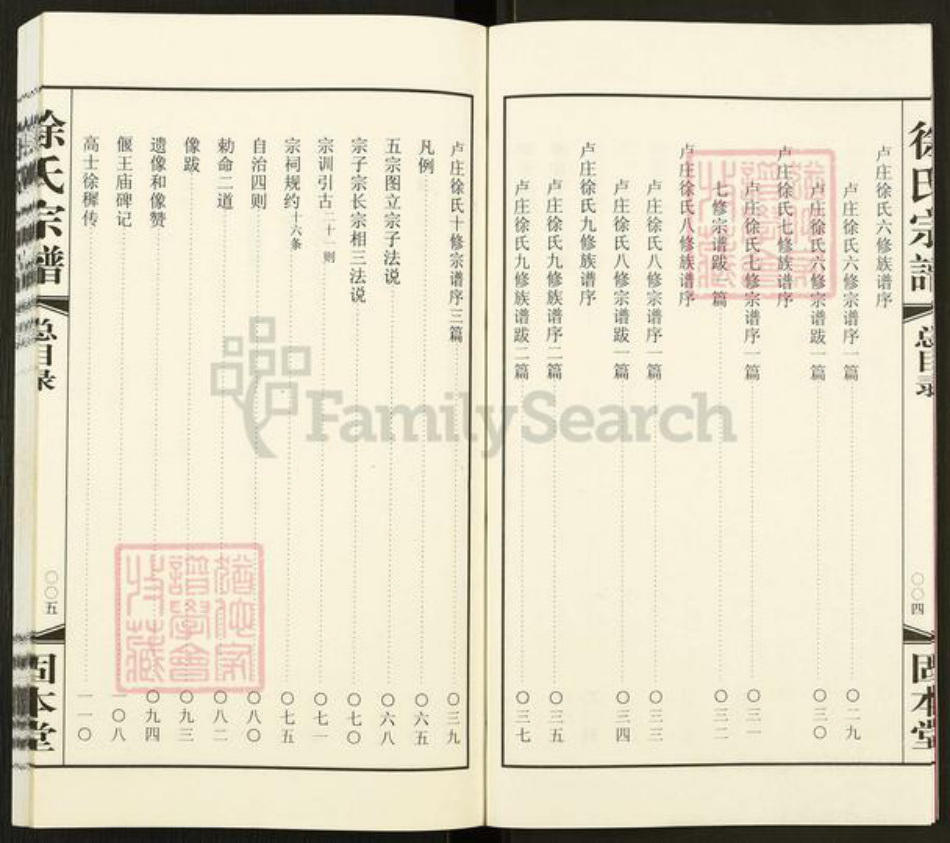 徐氏宗谱
总目录
〇〇四
固本堂
卢庄徐氏六修族谱序
卢庄徐氏六修宗谱序一篇 〇二九
卢庄徐氏六修宗谱跋一篇 〇三〇
卢庄徐氏七修族谱序
卢庄徐氏七修宗谱序一篇 〇三一
七修宗谱跋一篇 〇三二
卢庄徐氏八修族谱序
卢庄徐氏八修宗谱序一篇 〇三三
卢庄徐氏八修宗谱跋一篇 〇三四
卢庄徐氏九修族谱序
卢庄徐氏九修族谱序二篇 〇三五
卢庄徐氏九修族谱跋二篇 〇三七
卢庄徐氏十修宗谱序三篇 〇三九
凡例 〇六五
五宗图立宗子法说 〇六八
宗子宗长宗相三法说 〇七〇
宗训引古二十一则 〇七一
宗祠规约十六条 〇七五
自治四则 〇八〇
勅命二道 〇八二
像跋 〇九三
遗像和像赞 〇九四
偃王庙碑记 一〇八
高士徐稺传 一一〇
徐氏宗谱
总目录
〇〇五
固本堂
FamilySearch